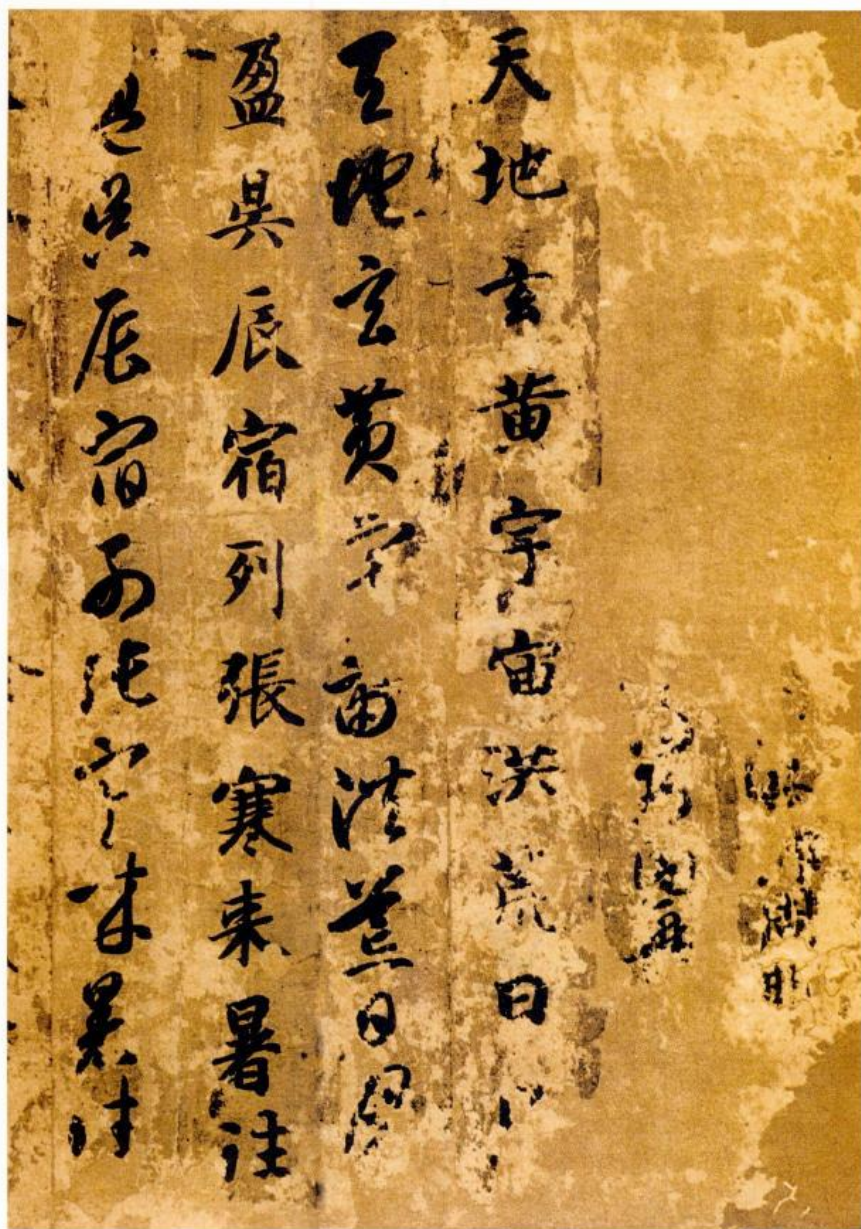 天地玄黄宇宙洪荒日
天地玄黄宇宙洪荒日
盈昃辰宿列張寒來暑往
盈昃辰宿列張寒來暑往